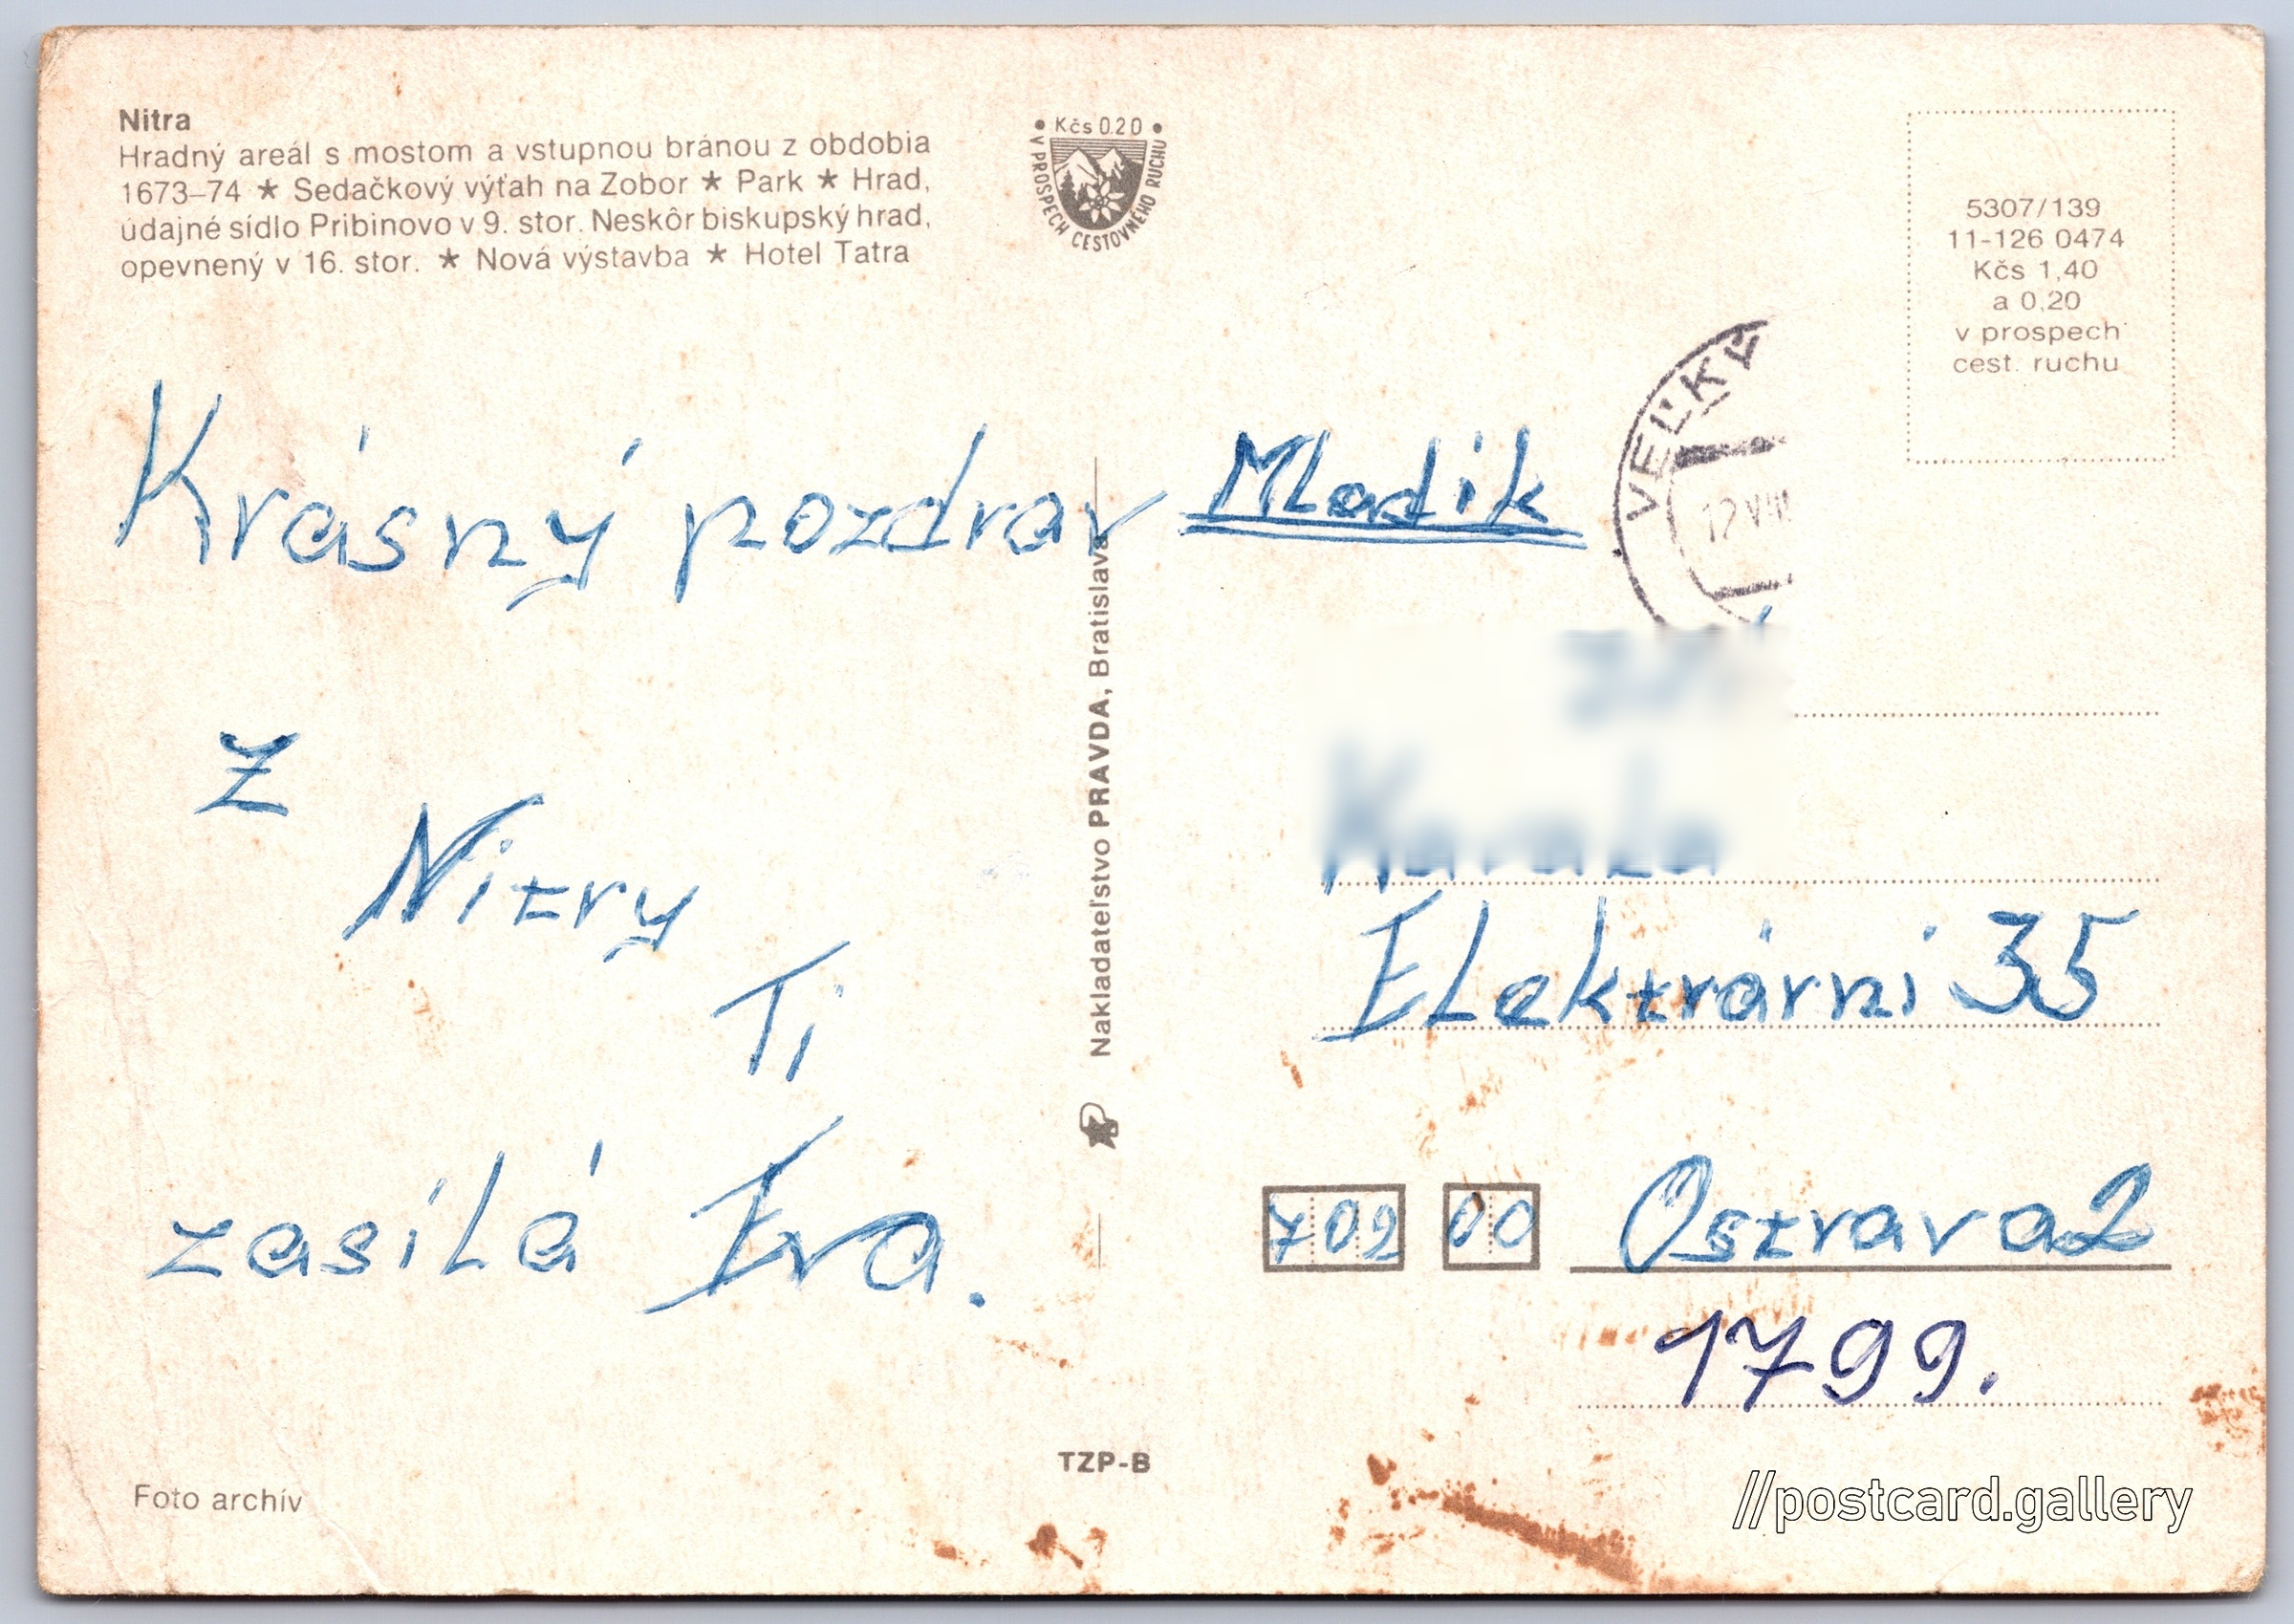 Nitra
Hradný areál s mostom a vstupnou bránou z obdobia
1673–74 ★ Sedačkový výťah na Zobor ★ Park ★ Hrad,
údajné sídlo Pribinovo v 9. stor. Neskôr biskupský hrad,
opevnený v 16. stor. ★ Nová výstavba ★ Hotel Tatra
• Kčs 0.20 •
V PROSPECH CESTOVNÉHO RUCHU
5307/139
11-126 0474
Kčs 1,40
a 0,20
v prospech
cest. ruchu
VEĽKÝ
12 VIII
Krásný pozdrav
z
Nitry
Ti
zasílá Eva.
Nakladateľstvo PRAVDA, Bratislava
Mladík
Elektrární 35
709 00 Ostrava 2
1799.
TZP-B
Foto archív
//postcard.gallery